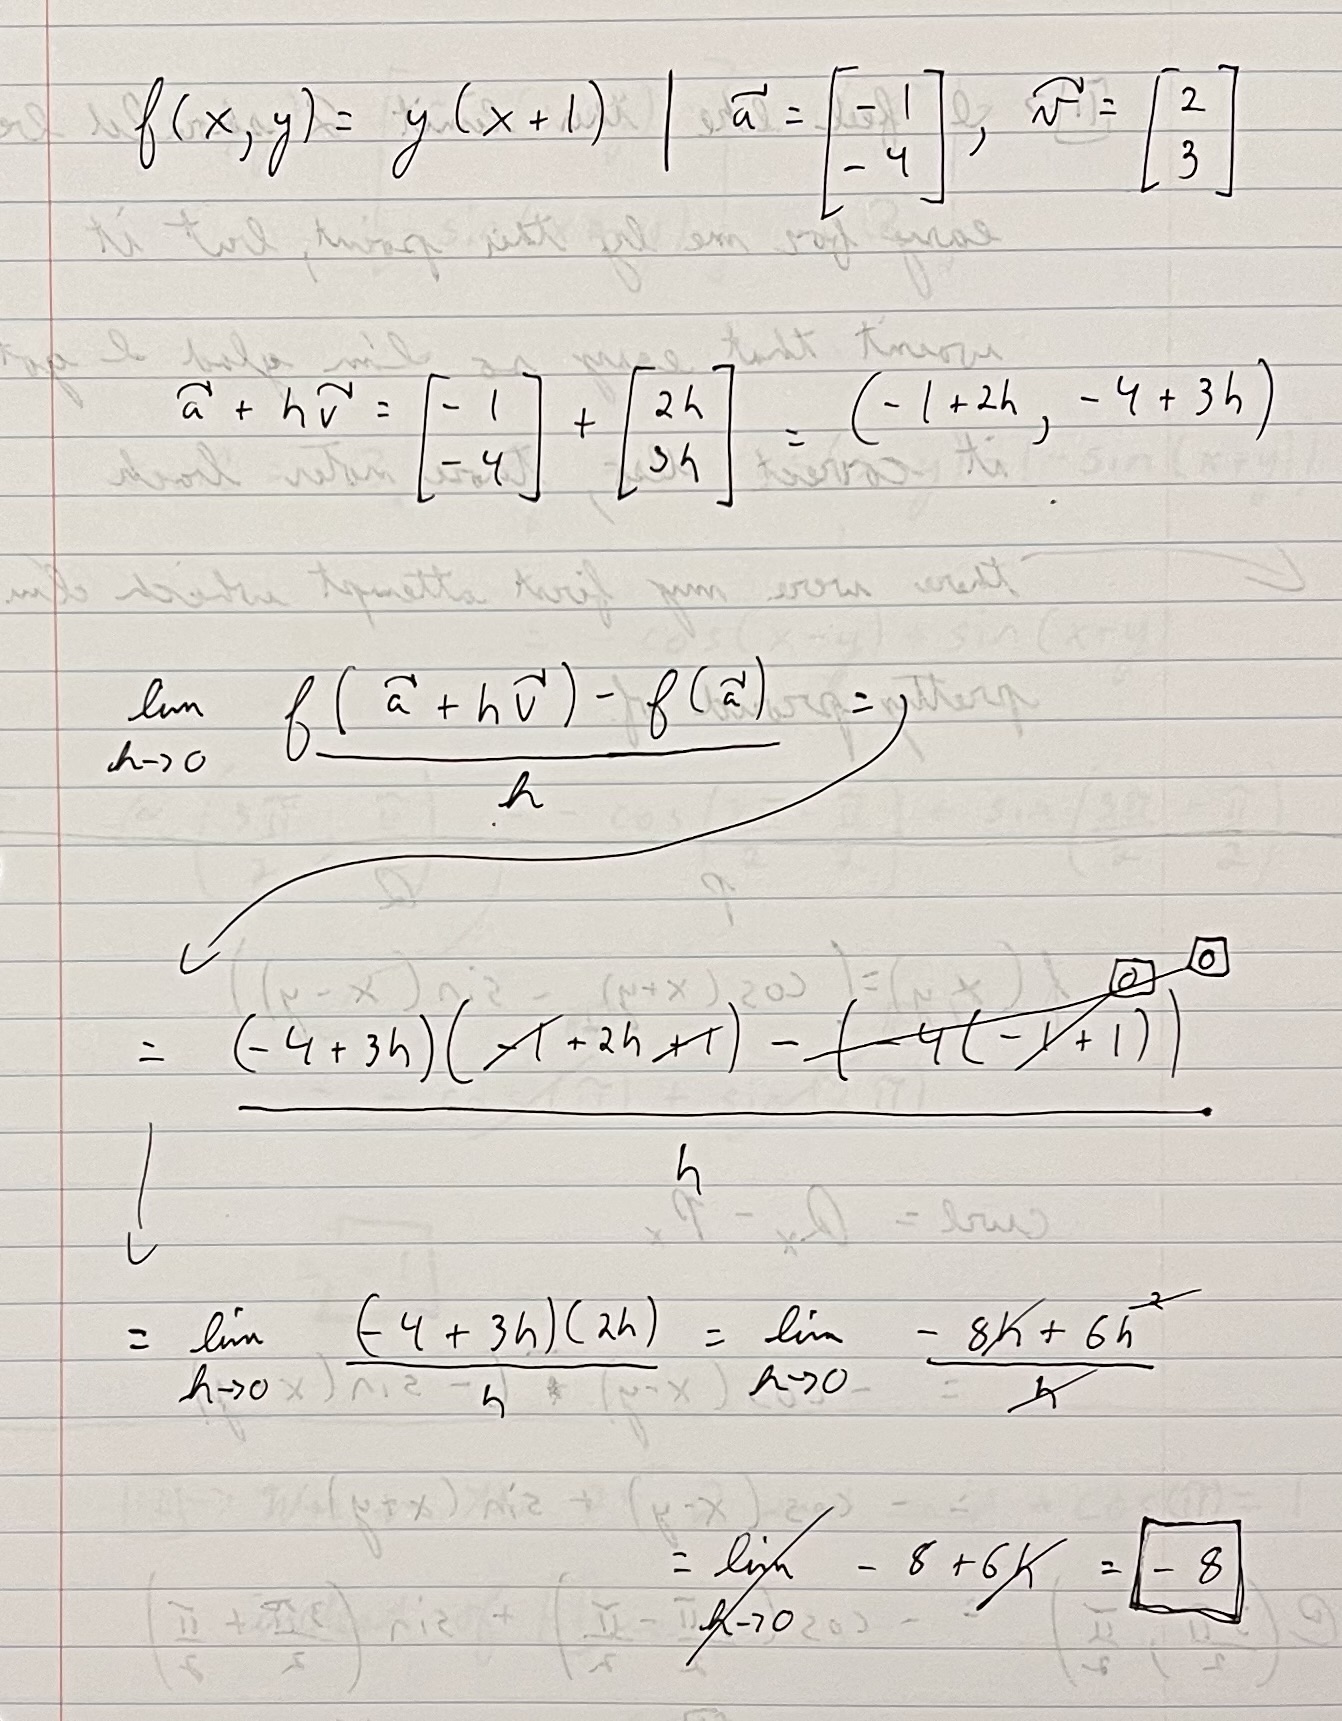 f(x,y) = y(x+1) | a⃗ = [-1 -4], v⃗ = [2 3]
a⃗ + hv⃗ = [-1 -4] + [2h 3h] = (-1+2h, -4+3h)
lim h→0 f(a⃗ + hv⃗) - f(a⃗) / h =
0 0
= (-4+3h)(-1+2h+1) - (-4(-1+1)) / h
= lim h→0 (-4+3h)(2h) / h = lim h→0 -8h+6h² / h
= lim h→0 -8+6h = -8